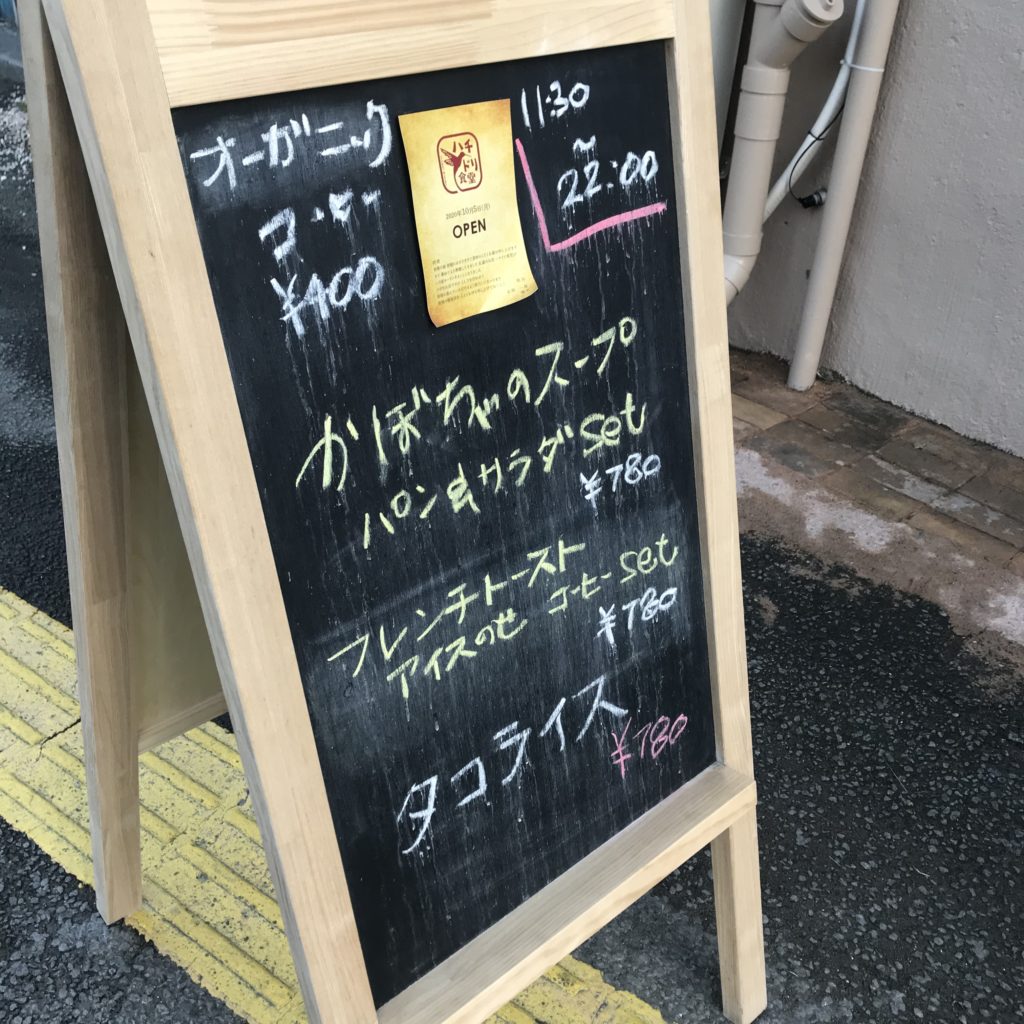 オーガニック
コーヒー
¥400
ハチドリ
食堂
2020年10月5日(月)
OPEN
11:30
~
22:00
かぼちゃのスープ
パン&サラダset
¥780
フレンチトースト
アイスのせ コーヒーset
¥780
タコライス
¥780